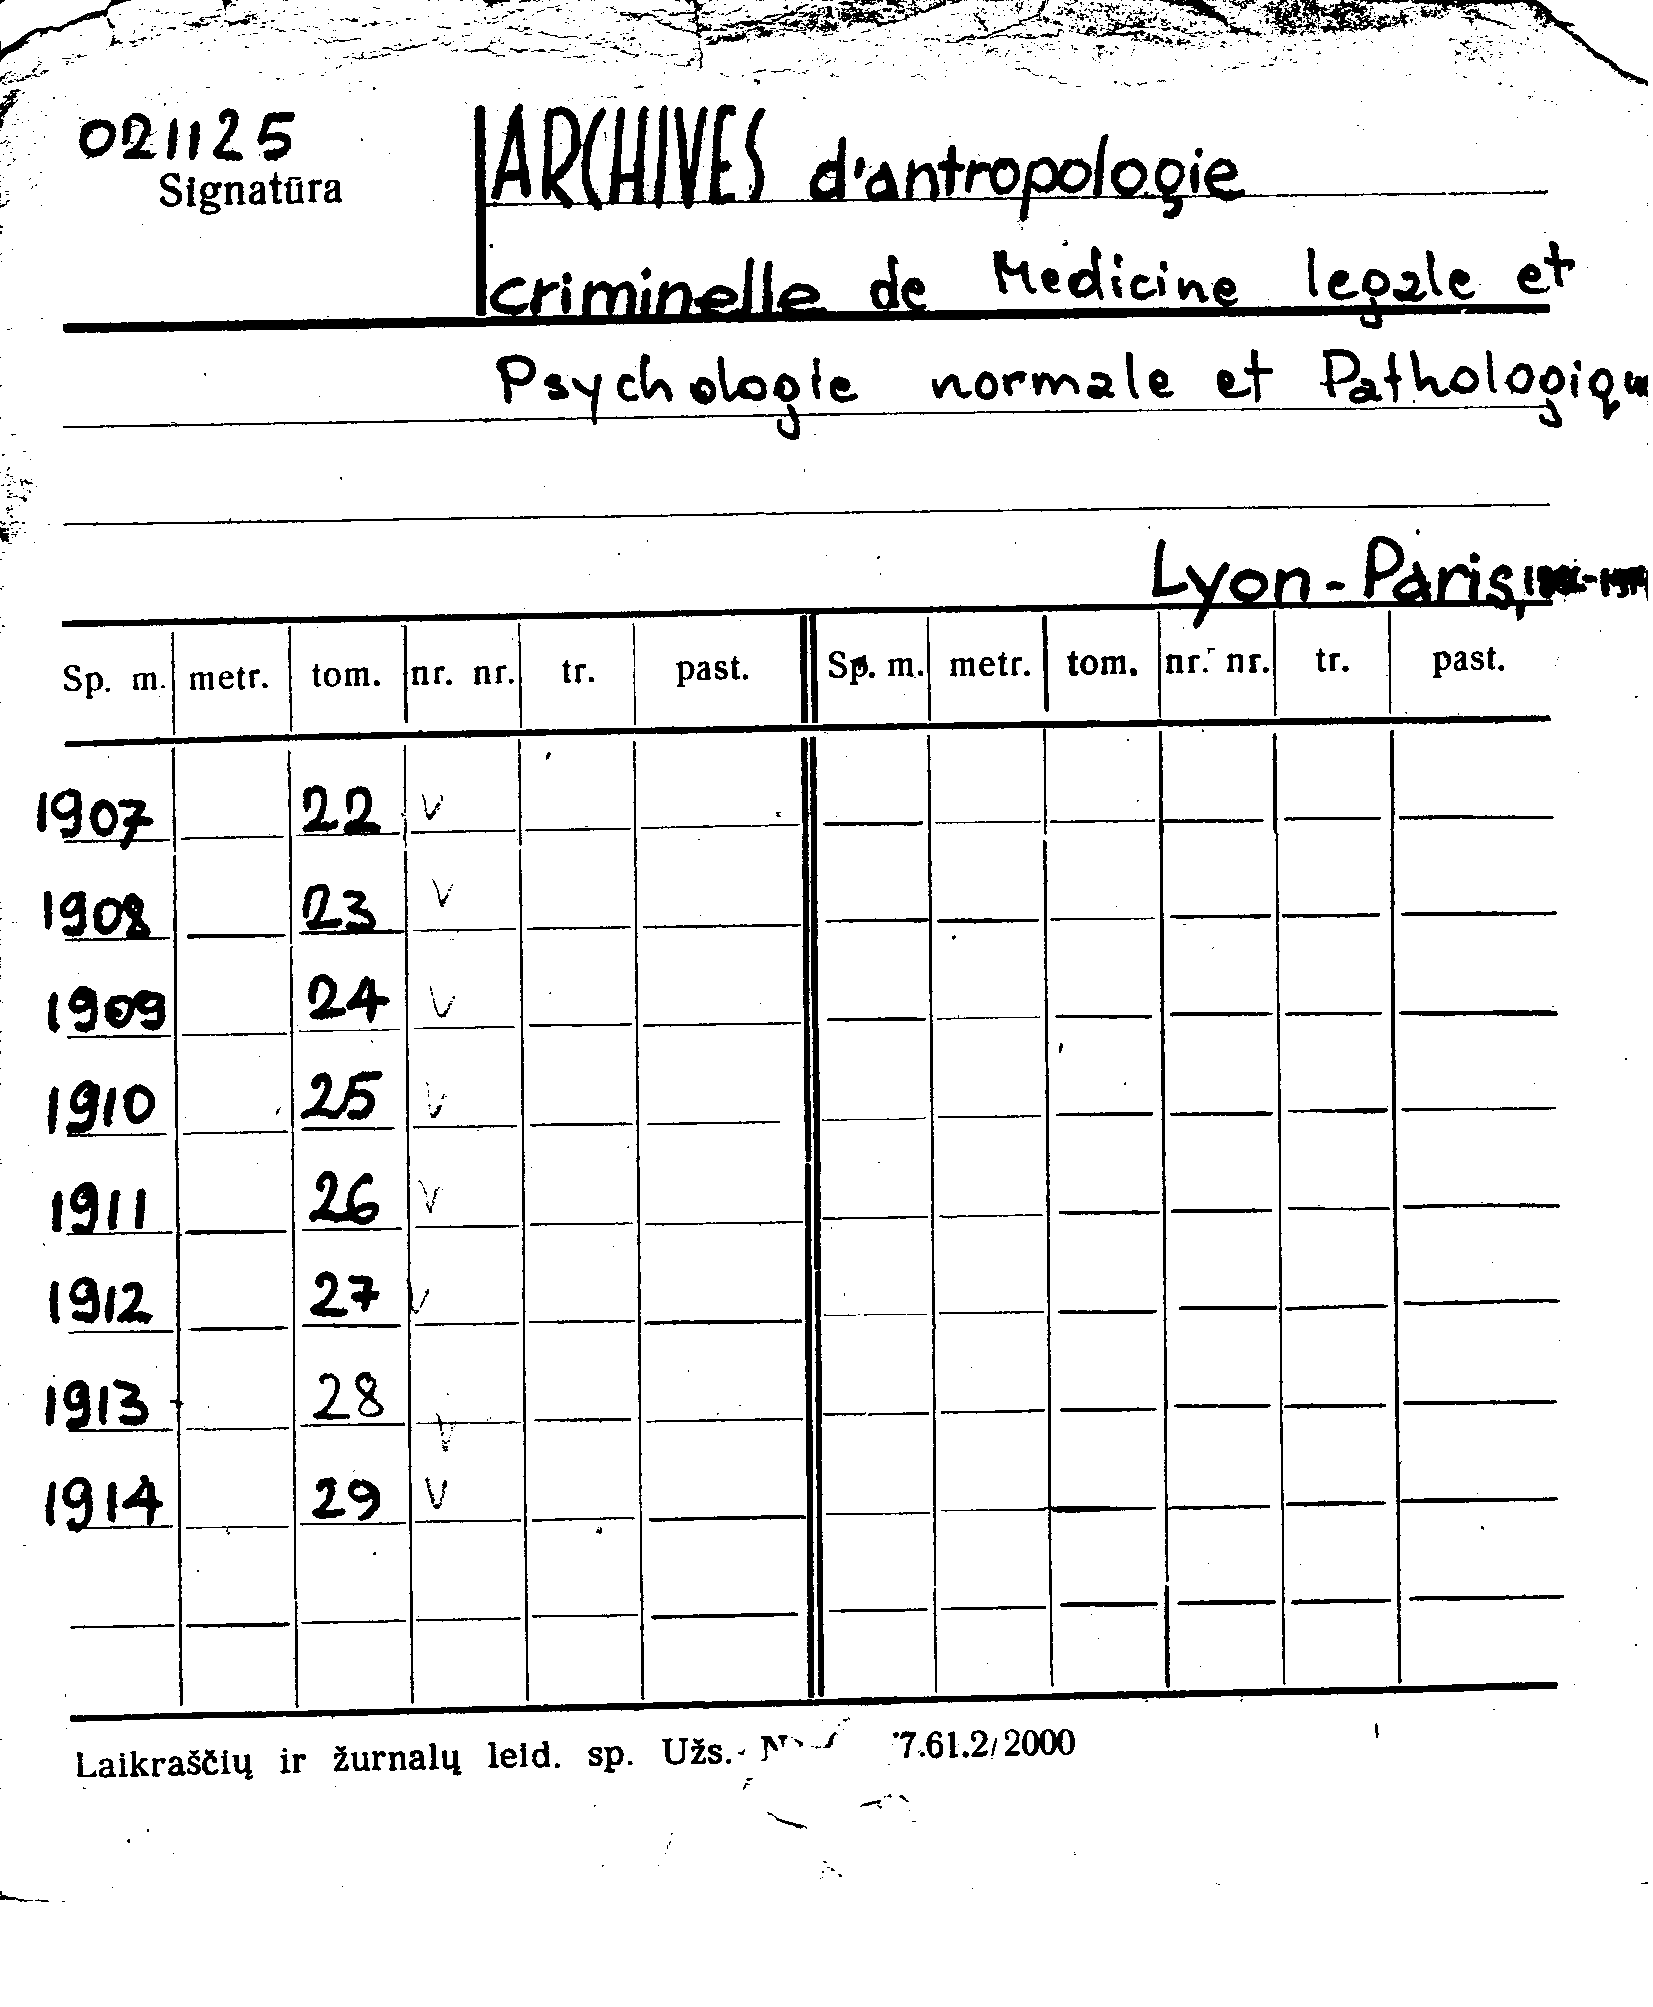 021125
Signatūra
ARCHIVES d'antropologie
criminelle de Medicine legale et
Psychologie normale et Pathologique
Lyon-Paris,
Sp. m. metr. tom. nr. nr. tr. past. Sp. m. metr. tom. nr. nr. tr. past.
1907 22 v
1908 23 v
1909 24 v
1910 25 v
1911 26 v
1912 27 v
1913 28 v
1914 29 v
Laikraščių ir žurnalų leid. sp. Užs. 7.61.2/2000